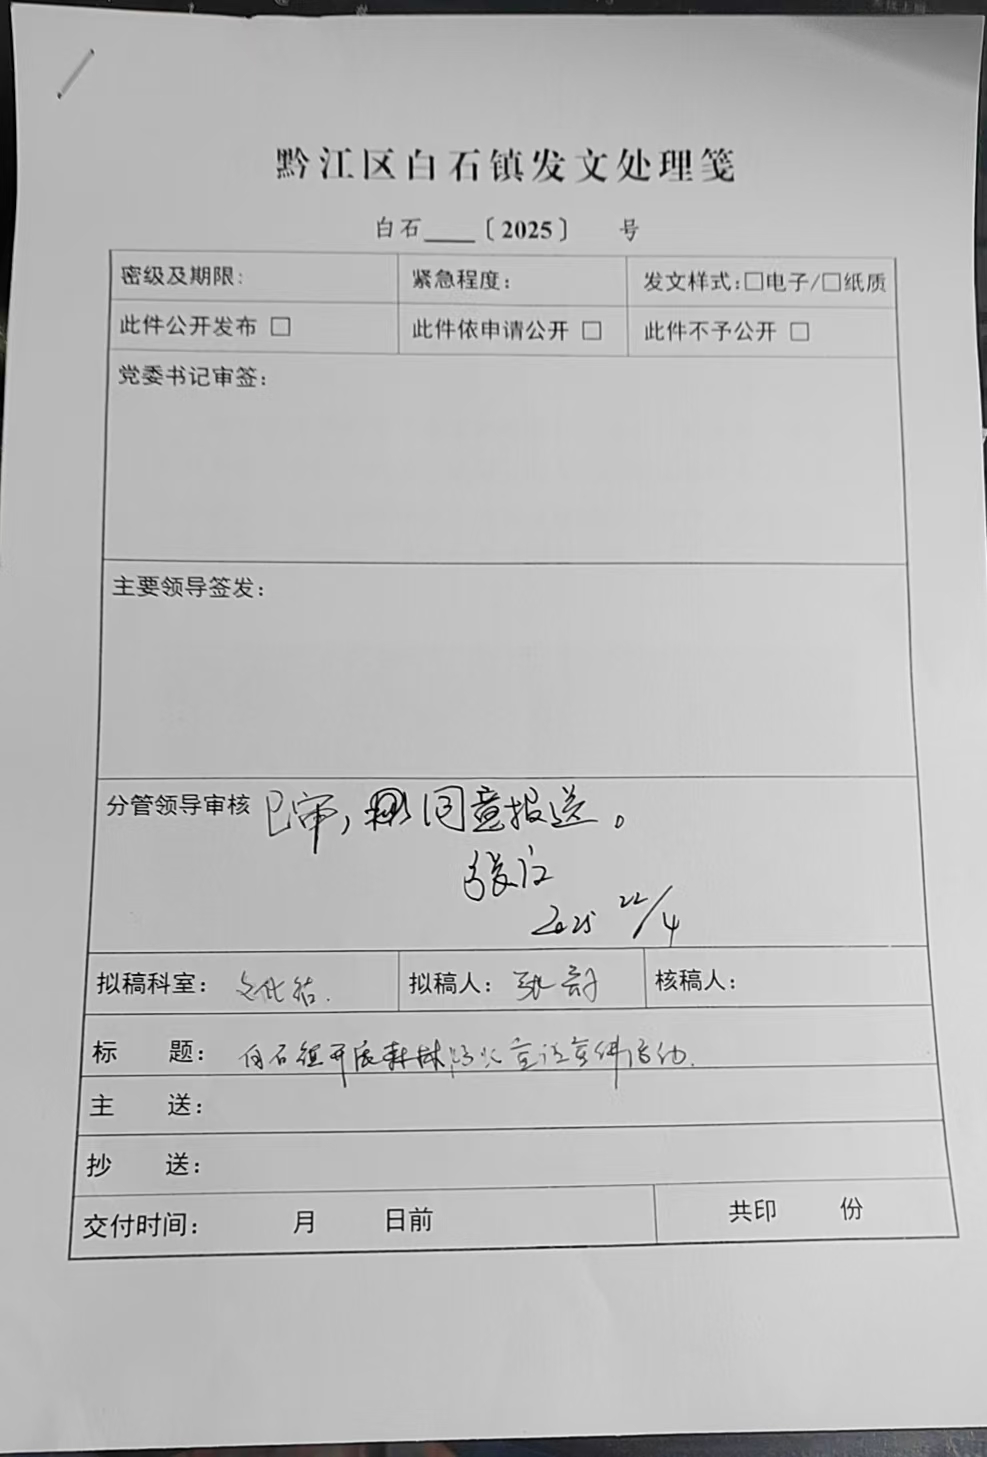 黔江区白石镇发文处理笺
白石____〔2025〕 号
密级及期限： 紧急程度： 发文样式：□电子/□纸质
此件公开发布 □ 此件依申请公开 □ 此件不予公开 □
党委书记审签：
主要领导签发：
分管领导审核 已审，同意报送。
2025 22/4
拟稿科室： 文化站. 拟稿人： 核稿人：
标 题： 白石镇开展森林防火宣传活动.
主 送：
抄 送：
交付时间： 月 日前 共印 份